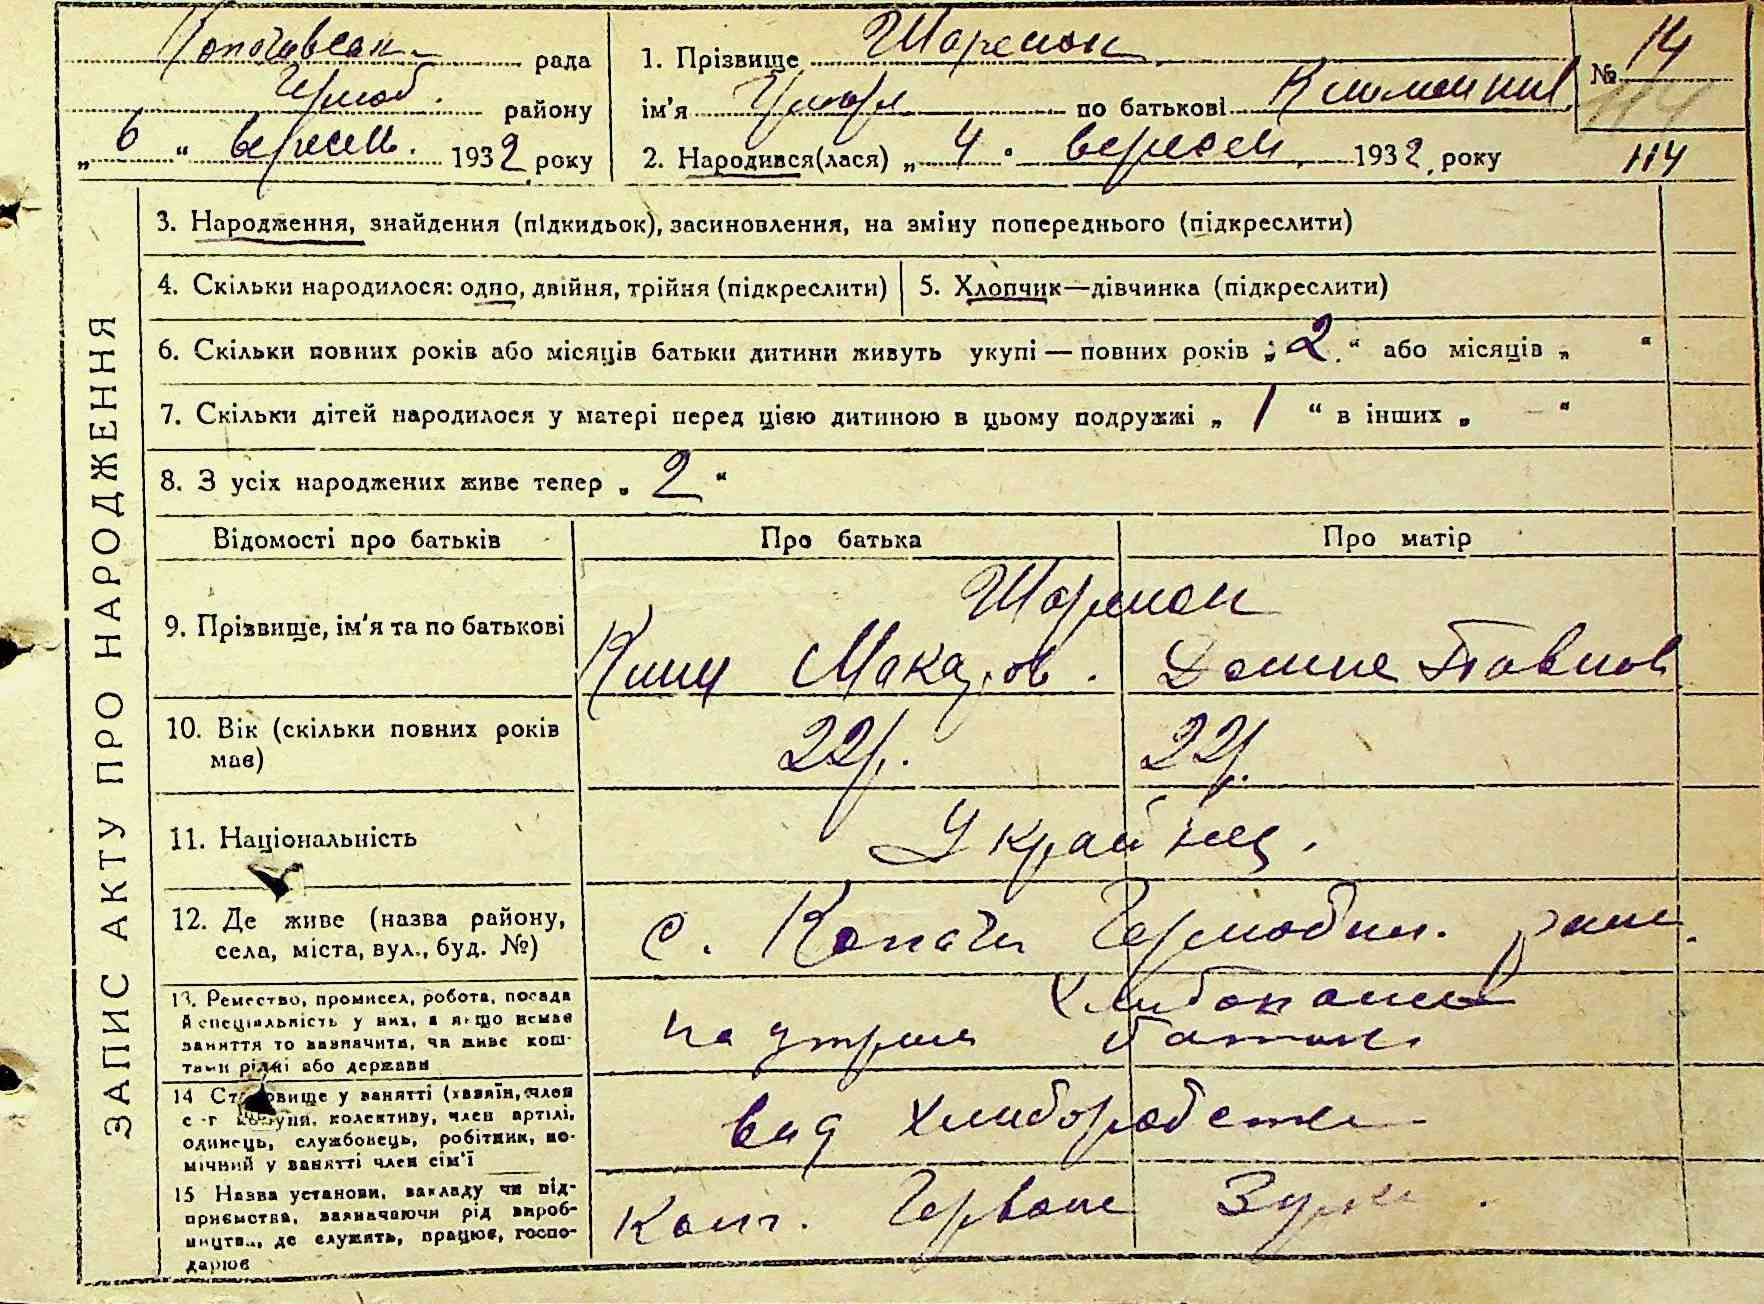 Копачівськ. рада
Чорноб. району
„ 6 “ вересн. 1932 року
1. Прізвище
ім'я по батькові
№ 14
114
2. Народився(лася) „ 4 “ вересня 1932 року
114
ЗАПИС АКТУ ПРО НАРОДЖЕННЯ
3. Народження, знайдення (підкидьок), засиновлення, на зміну попереднього (підкреслити)
4. Скільки народилося: одно, двійня, трійня (підкреслити)
5. Хлопчик—дівчинка (підкреслити)
6. Скільки повних років або місяців батьки дитини живуть укупі — повних років „ 2 “ або місяців „ “
7. Скільки дітей народилося у матері перед цією дитиною в цьому подружжі „ 1 “ в інших „ – “
8. З усіх народжених живе тепер „ 2 “
Відомості про батьків
Про батька
Про матір
9. Прізвище, ім'я та по батькові
Клим Макаров.
Павлов
10. Вік (скільки повних років
має)
22 р.
22 р.
11. Національність
Українц.
12. Де живе (назва району,
села, міста, вул., буд. №)
с. Копачи Чорнобил. району
13. Ремество, промисел, робота, посада
й спеціяльність у них, а якщо немає
заняття то зазначити, чи живе кош-
тами рідні або держави
Хлибопашев
на утрим батьк
14 Становище у занятті (хазяїн, член
с-г комуни, колективу, член артілі,
одинець, службовець, робітник, по-
мічний у занятті член сім'ї
вид хлиборобства
15 Назва установи, закладу чи під-
приємства, зазначаючи рід вироб-
ництва, де служить, працює, госпо-
дарює
Колг. Червона Зирка.